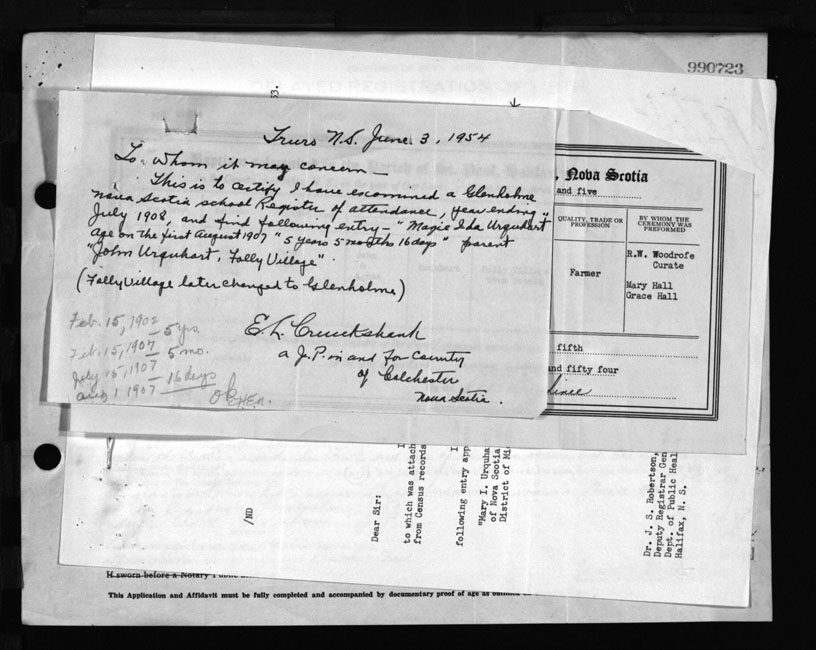 990723
Truro N.S. June 3, 1954
To Whom it may concern —
This is to certify I have examined a Glenholme
Nova Scotia school Register of attendance, year ending
July 1908, and find following entry — "Magie Ida Urquhart
age on the first August 1907 "5 years 5 months 16 days" parent
"John Urquhart, Folly Village".
(Folly Village later changed to Glenholme)
E. L. Cruickshank
a J. P. in and for County
of Colchester
Nova Scotia.
Feb. 15, 1902
— 5 yrs.
Feb. 15, 1907
— 5 mo.
July 15, 1907
— 16 days
Aug 1 1907
OK
, Nova Scotia
and five
QUALITY, TRADE OR
PROFESSION
BY WHOM THE
CEREMONY WAS
PREFORMED
Farmer
R.W. Woodrofe
Curate
Mary Hall
Grace Hall
fifth
and fifty four
/ND
Dear Sir:
to which was attach
from Census records
following entry app
"Mary I. Urquha
of Nova Scotia
District of Mi
Dr. J. S. Robertson,
Deputy Registrar Gen
Dept. of Public Heal
Halifax, N. S.
H sworn before a Notary Public
This Application and Affidavit must be fully completed and accompanied by documentary proof of age as outlined